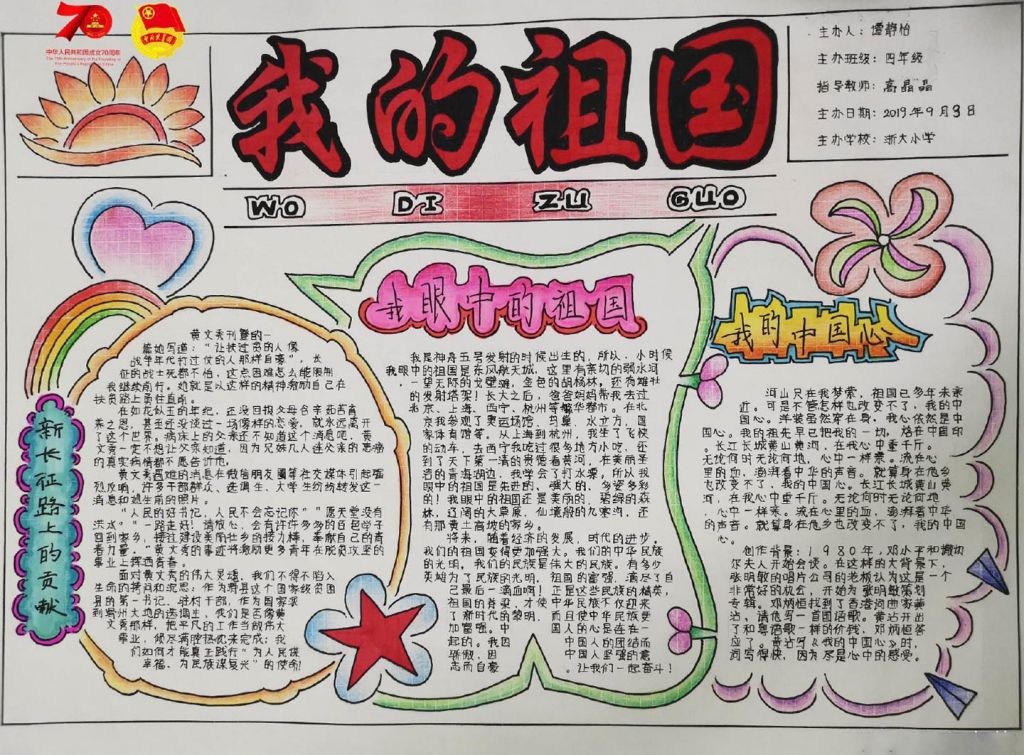 70
中华人民共和国成立70周年
The 70th Anniversary of the Founding of
The People's Republic of China
中国少年先锋队
我的祖国
WO DI ZU GUO
主办人：谭静怡
主办班级：四年级
指导教师：高晶晶
主办日期：2019年9月3日
主办学校：浙大小学
新长征路上的贡献
黄文秀刊登的一
篇她写道：“让扶过贫的人像
战争年代打过仗的人那样自豪”，长
征的战士死都不怕，这点困难怎么能限制
我继续前行。她就是以这样的精神激励自己在
扶贫路上勇往直前。
在如花似玉的年纪，还没回报父母含辛茹苦育
养之恩，甚至还没谈过一场像样的恋爱，就永远离开
了这个世界。病床上的父亲还不知道这个消息吧，黄
文秀一定不想让父亲知道，因为兄妹几人连父亲的患癌
的真实病情都不愿告诉他。
文秀离难的消息在微信朋友圈等社交媒体引起强
烈反响，许多干部群众、选调生、大学生纷纷转发这一
消息和她生前的照片。
“人民的好书记，人民不会忘记你”“愿天堂没有
洪水”“一路走好！请放心，会有许许多多的百色学子
回到家乡，接过建设美丽壮乡的接力棒，奉献自己的青
春力量。”黄文秀的事迹将激励更多青年在脱贫攻坚的
事业上挥洒青春。
面对黄文秀的伟大灵魂，我们不得不陷入
生命的拷问和沉思：作为寿县这个国家级贫困
县的第一书记、驻村干部，作为国家派
到蜀州大地的选调生，我们是否像黄
文秀那样，把平凡的工作当做伟大
事业，倾尽满腔热忱来完成；我
们如何才能真正践行“为人民谋
幸福、为民族谋复兴”的使命！
我眼中的祖国
我是神舟五号发射的时候出生的，所以，小时候
我眼中的祖国是东风航天城，这里有亲切的弱水河
，一望无际的戈壁滩，金色的胡杨林，还有雄壮
的发射塔架！长大之后，爸爸妈妈带我去过
北京、上海、西宁、杭州等繁华都市。在北
京我参观了奥运场馆、鸟巢、水立方、国
家体育馆等。从上海到杭州，我坐了飞快
的动车，去西宁我吃过很多地方小吃，还
到了天下第一清的贵德看黄河，在美丽圣
洁的青海湖边，我学会了打水漂，所以我
眼中的祖国是先进的、强大的、多姿多彩
的！我眼中的祖国还是美丽的、碧绿的森
林，辽阔的大草原，仙境般的九寨沟，还
有那黄土高坡的家乡。
将来，随着经济的发展，时代的进步，
我们的祖国变得更加强大。我们的中华民族
的光明，我们的民族是伟大的民族。有多少
英雄为了民族的光明，祖国的富强，满尽了自
己最后一滴血啊！正是这些民族的精英，
祖国的脊梁，才使中华民族不仅迎来
了新时代的黎明，而且使中华民族更
加富强。中国人的心是连在一
起的。我因中国人的团结而
骄傲，因中国人坚强的意
志而自豪。让我们一起奋斗！
我的中国心
河山只在我梦萦，祖国已多年未亲
近。可是不管怎样也改变不了，我的中
国心。洋装虽然穿在身，我心依然是中
国心。我的祖先早已把我的一切，烙在中国印
。长江长城黄山黄河，在我心中重千斤
无论何时无论何地，心中一样亲。流在心
里的血，澎湃着中华的声音。就算身在他乡
也改变不了，我的中国心。长江长城黄山黄
河，在我心中重千斤。无论何时无论何地
，心中一样亲。流在心里的血，澎湃着中华
的声音。就算身在他乡也改变不了，我的中国
心。
创作背景：1980年，邓小平和撒切
尔夫人开始会谈。在这样的大背景下，
张明敏的唱片公司的老板认为这是一个
非常好的机会，开始为张明敏策划
专辑。邓炳恒找到了香港词曲家黄
沾，请他写一首国语歌。黄沾开出
了和粤语歌一样的价钱，邓炳恒答
应了。黄沾写《我的中国心》时，
词写得快，因为尽是心中的感受。